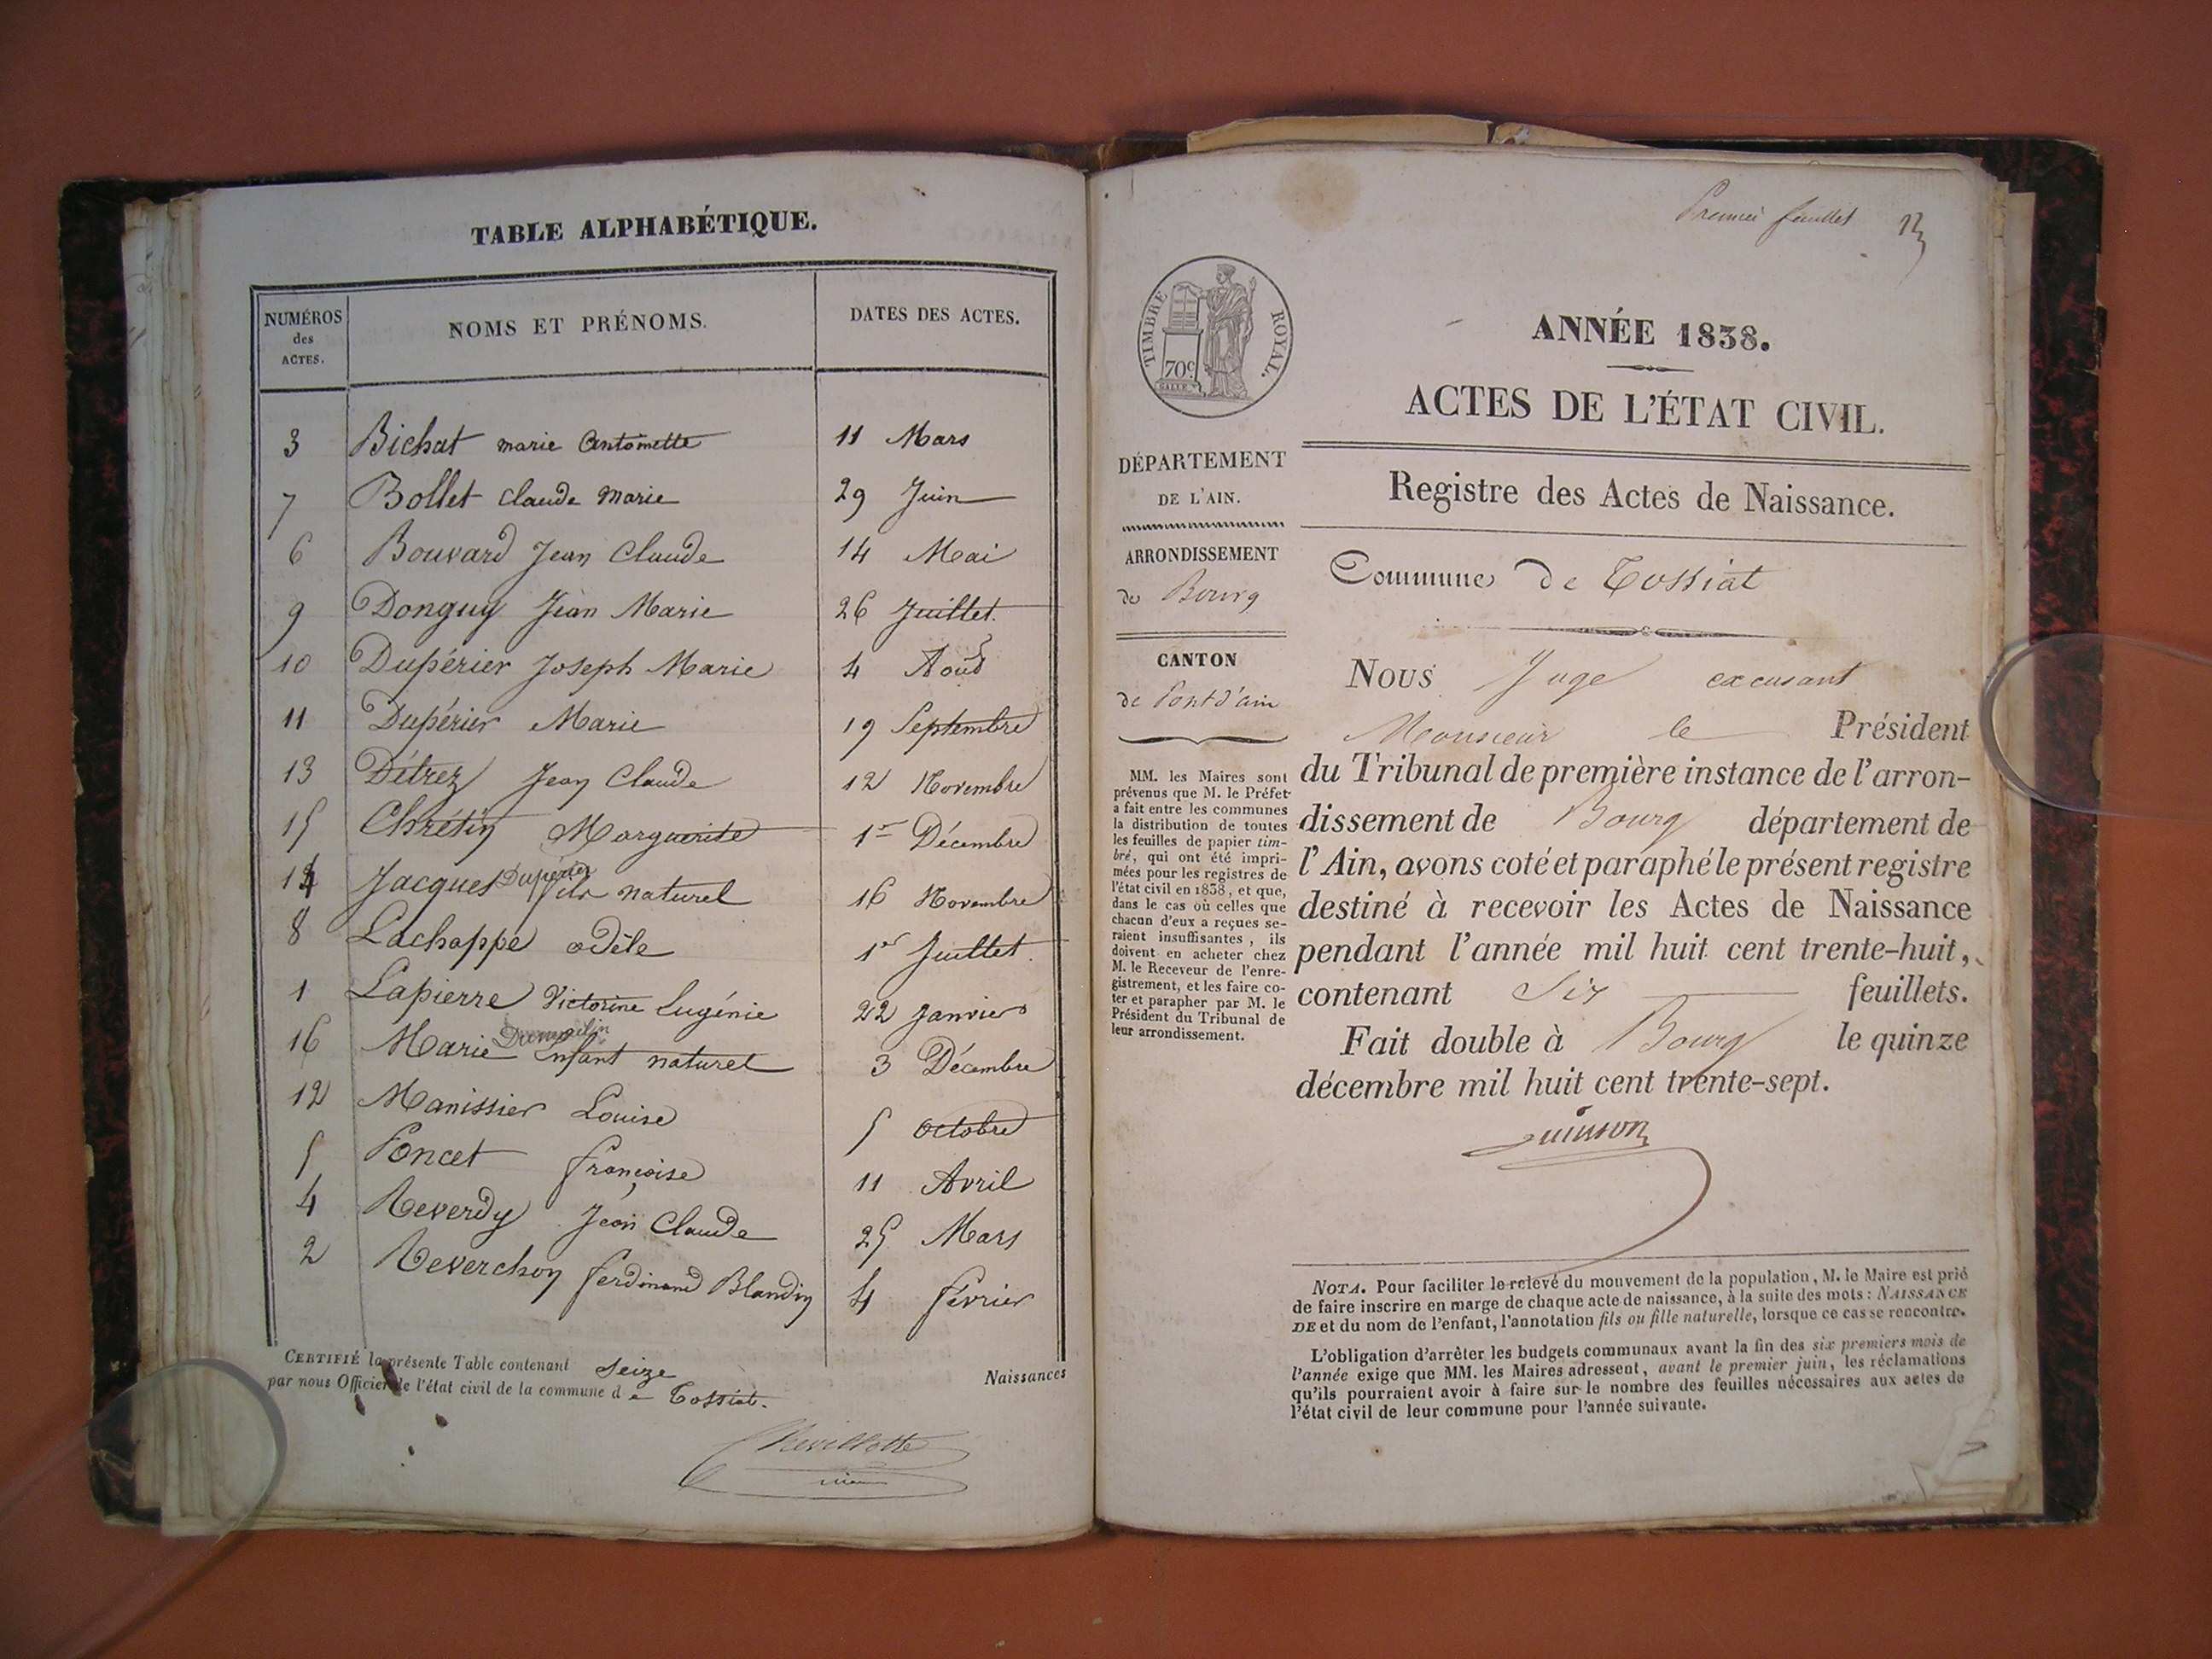 TABLE ALPHABÉTIQUE.
NUMÉROS
des
ACTES.
NOMS ET PRÉNOMS.
DATES DES ACTES.
3 Bichat marie Antoinette 11 Mars
7 Bollet Claude Marie 29 Juin
6 Bouvard Jean Claude 14 Mai
9 Donguy Jean Marie 26 Juillet.
10 Dupérier Joseph Marie 4 Août
11 Dupérier Marie 19 Septembre
13 Détrez Jean Claude 12 Novembre
15 Chrétin Marguerite 1er Décembre
14 Jacques Dupérier fils naturel 16 Novembre
8 Lachappe adèle 1er Juillet.
1 Lapierre Victorine Eugénie 22 Janvier
16 Marie Enfant naturel 3 Décembre
12 Manissier Louise 5 Octobre
5 Poncet françoise 11 Avril
4 Reverdy Jean Claude 25 Mars
2 Reverchon ferdinand Blandin 4 février
CERTIFIÉ la présente Table contenant Seize Naissances
par nous Officier de l'état civil de la commune d e Tossiat.
Chevillotte
Premier feuillet
TIMBRE ROYAL.
70c
ANNÉE 1838.
ACTES DE L'ÉTAT CIVIL.
DÉPARTEMENT
DE L'AIN.
ARRONDISSEMENT
de Bourg
CANTON
de Pont d'ain
MM. les Maires sont
prévenus que M. le Préfet
a fait entre les communes
la distribution de toutes
les feuilles de papier tim-
bré, qui ont été impri-
mées pour les registres de
l'état civil en 1838, et que,
dans le cas où celles que
chacun d'eux a reçues se-
raient insuffisantes, ils
doivent en acheter chez
M. le Receveur de l'enre-
gistrement, et les faire co-
ter et parapher par M. le
Président du Tribunal de
leur arrondissement.
Registre des Actes de Naissance.
Commune de Tossiat
NOUS Juge excusant
Monsieur le Président
du Tribunal de première instance de l'arron-
dissement de Bourg département de
l'Ain, avons coté et paraphé le présent registre
destiné à recevoir les Actes de Naissance
pendant l'année mil huit cent trente-huit,
contenant Six feuillets.
Fait double à Bourg le quinze
décembre mil huit cent trente-sept.
NOTA. Pour faciliter le relevé du mouvement de la population, M. le Maire est prié
de faire inscrire en marge de chaque acte de naissance, à la suite des mots : NAISSANCE
DE et du nom de l'enfant, l'annotation fils ou fille naturelle, lorsque ce cas se rencontre.
L'obligation d'arrêter les budgets communaux avant la fin des six premiers mois de
l'année exige que MM. les Maires adressent, avant le premier juin, les réclamations
qu'ils pourraient avoir à faire sur le nombre des feuilles nécessaires aux actes de
l'état civil de leur commune pour l'année suivante.